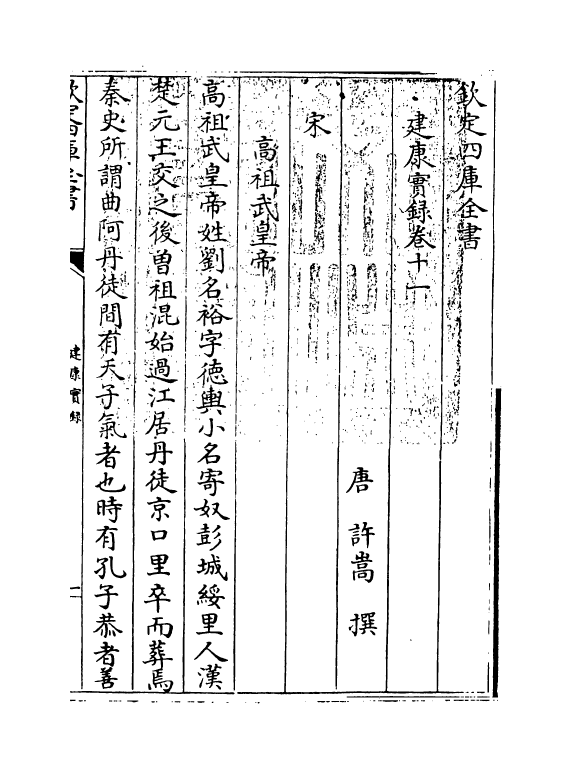 欽定四庫全書
建康實錄卷十一
唐 許嵩 撰
宋
高祖武皇帝
高祖武皇帝姓劉名裕字德輿小名寄奴彭城綏里人漢
楚元王交之後曽祖混始過江居丹徒京口里卒而葬焉
秦史所謂曲阿丹徒間有天子氣者也時有孔子恭者善
欽定四庫全書
建康實錄